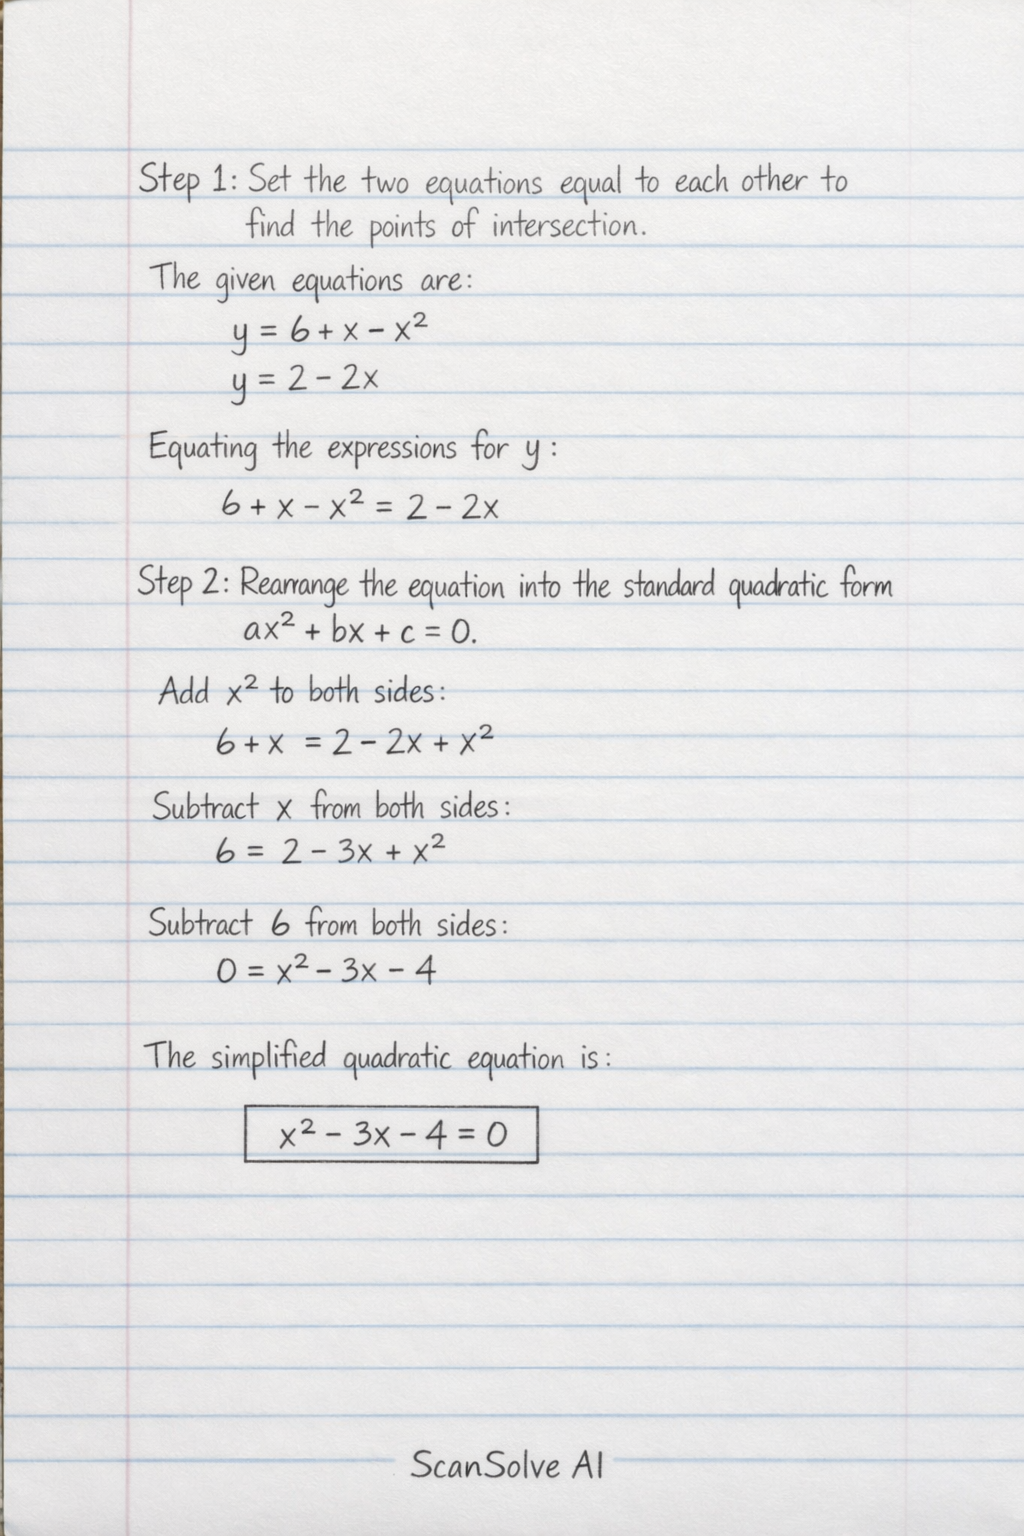 Step 1: Set the two equations equal to each other to
find the points of intersection.
The given equations are:
y = 6 + x − x²
y = 2 − 2x
Equating the expressions for y:
6 + x − x² = 2 − 2x
Step 2: Rearrange the equation into the standard quadratic form
ax² + bx + c = 0.
Add x² to both sides:
6 + x = 2 − 2x + x²
Subtract x from both sides:
6 = 2 − 3x + x²
Subtract 6 from both sides:
0 = x² − 3x − 4
The simplified quadratic equation is:
x² − 3x − 4 = 0
ScanSolve AI